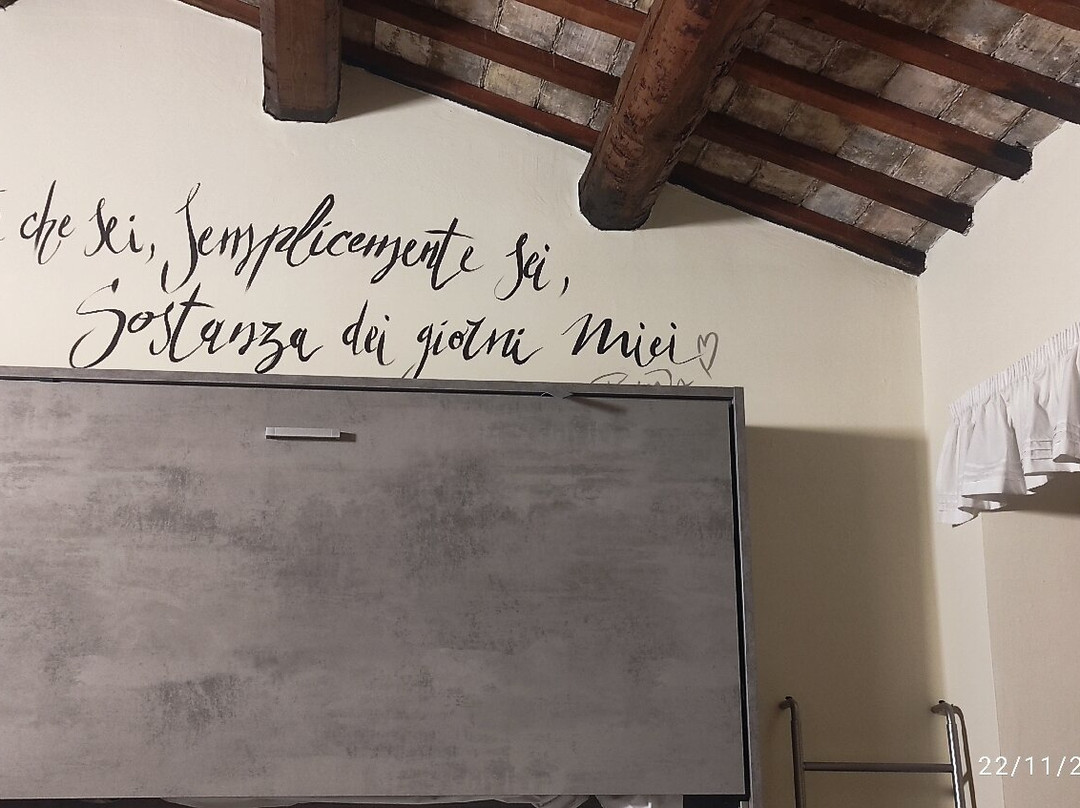 che sei, Semplicemente sei,
Sostanza dei giorni Miei
22/11/2